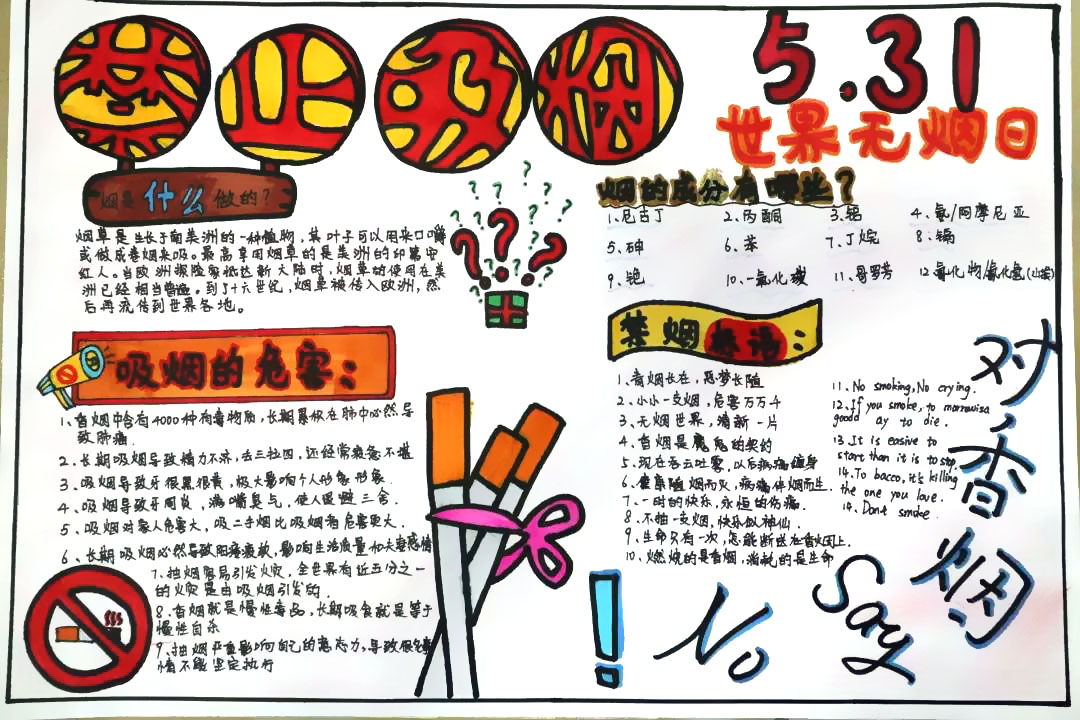 禁止吸烟
5.31
世界无烟日
烟是什么做的?
烟草是生长于南美洲的一种植物,其叶子可以用来口嚼
或做成卷烟来吸。最高享用烟草的是美洲的印第安
红人。当欧洲探险家抵达新大陆时,烟草的使用在美
洲已经相当普遍。到了十六世纪,烟草被传入欧洲,然
后再流传到世界各地。
烟的成分有哪些?
1、尼古丁 2、丙酮 3、铝 4、氨/阿摩尼亚
5、砷 6、苯 7、丁烷 8、镉
9、铯 10、一氧化碳 11、哥罗芳 12、氰化物/氰化氢
吸烟的危害:
1、香烟中含有4000种有毒物质,长期累积在肺中必然导
致肺癌.
2、长期吸烟导致精力不济,丢三拉四,还经常疲惫不堪
3、吸烟导致牙很黑很黄,极大影响个人的象形象.
4、吸烟导致牙周炎,满嘴臭气,使人退避三舍.
5、吸烟对家人危害大,吸二手烟比吸烟者危害更大.
6、长期吸烟必然导致阳痿,影响生活质量和夫妻感情
7、抽烟容易引发火灾,全世界有近五分之一
的火灾是由吸烟引发的.
8、香烟就是慢性毒品,长期吸食就是等于
慢性自杀
9、抽烟严重影响自己的意志力,导致很多事
情不能坚定执行
禁烟标语:
1、香烟长在,恶梦长随
2、小小一支烟,危害万万千
3、无烟世界,清新一片
4、香烟是魔鬼的契约
5、现在吞云吐雾,以后病痛缠身
6、健康随烟而灭,病痛伴烟而生.
7、一时的快乐,永恒的伤痛.
8、不抽一支烟,快乐似神仙.
9、生命只有一次,怎能断送在香烟上.
10、燃烧的是香烟,消耗的是生命
11、No smoking, No crying.
12、If you smoke, to morrow isa
goodd ay to die.
13、It is easive to
start than it is to stop.
14、To bacco, it's killing
the one you love.
14、Dont smoke.
对香烟
Say
No
!